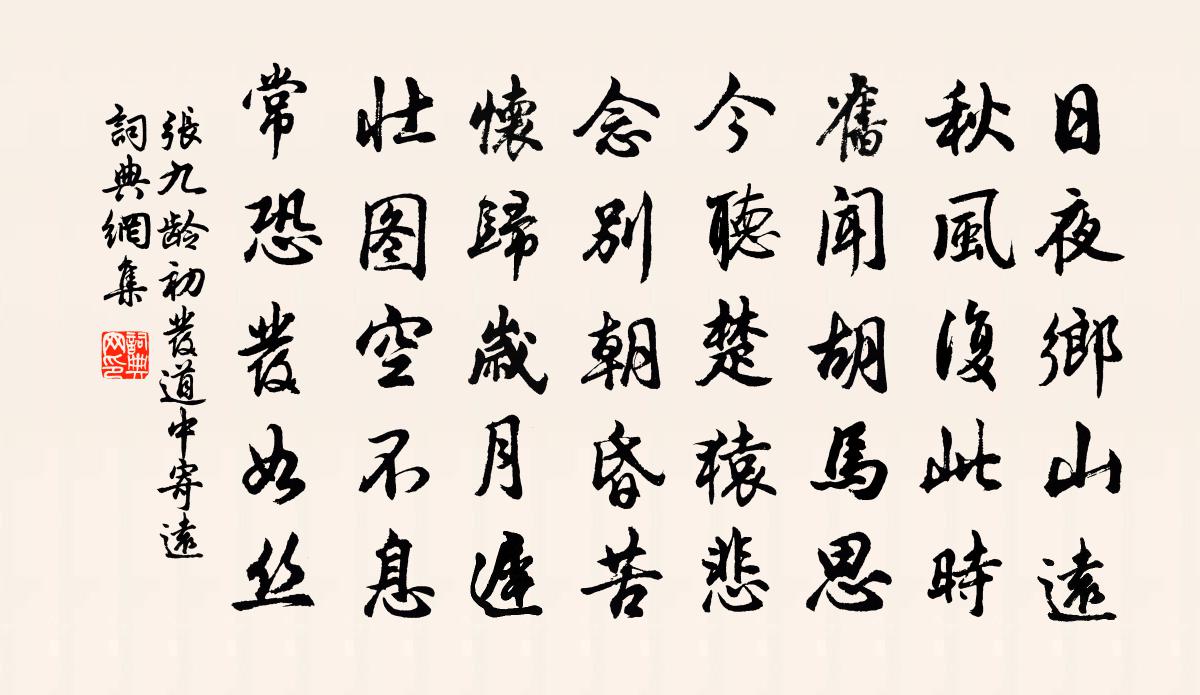 日夜鄉山遠
秋風復此時
舊聞胡馬思
今聽楚猿悲
念別朝昏苦
懷歸歲月遲
壯图空不息
常恐發如丝
張九龄初發道中寄遠
詞典網集
詞典网印